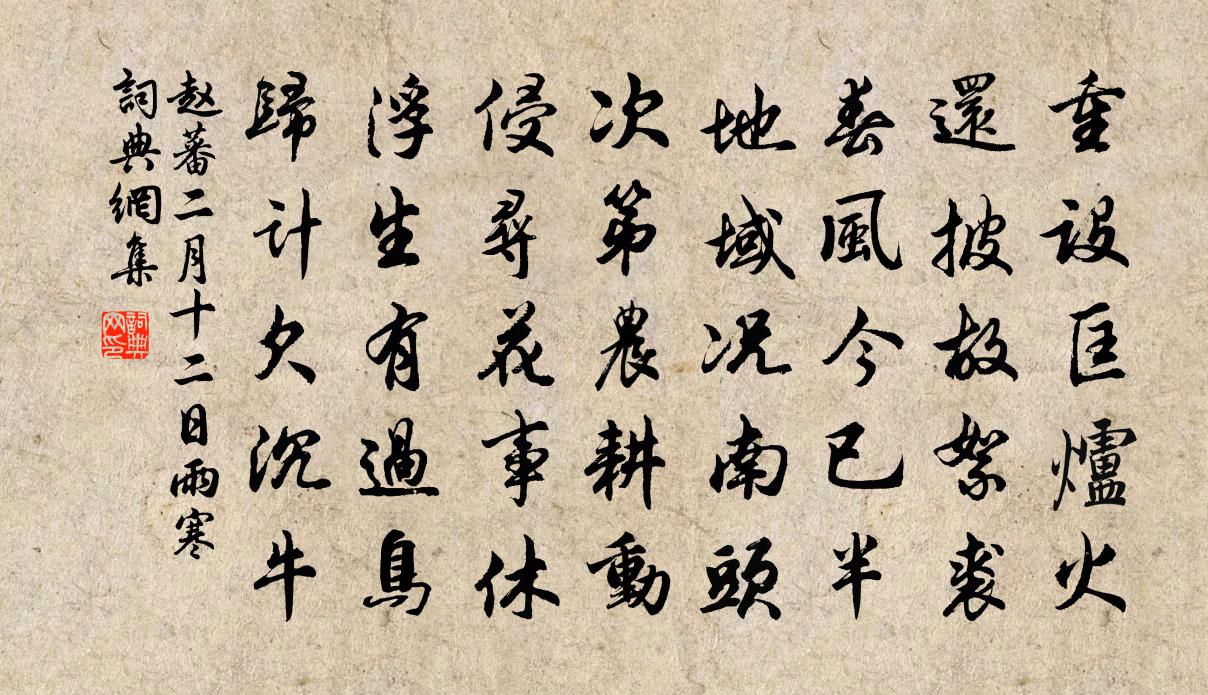 重設匡爐火
還披故絮裘
春風今已半
地域况南頭
次第農耕動
侵尋花事休
浮生有過鳥
歸计欠沉牛
赵蕃二月十二日雨寒
詞典網集
詞典网印